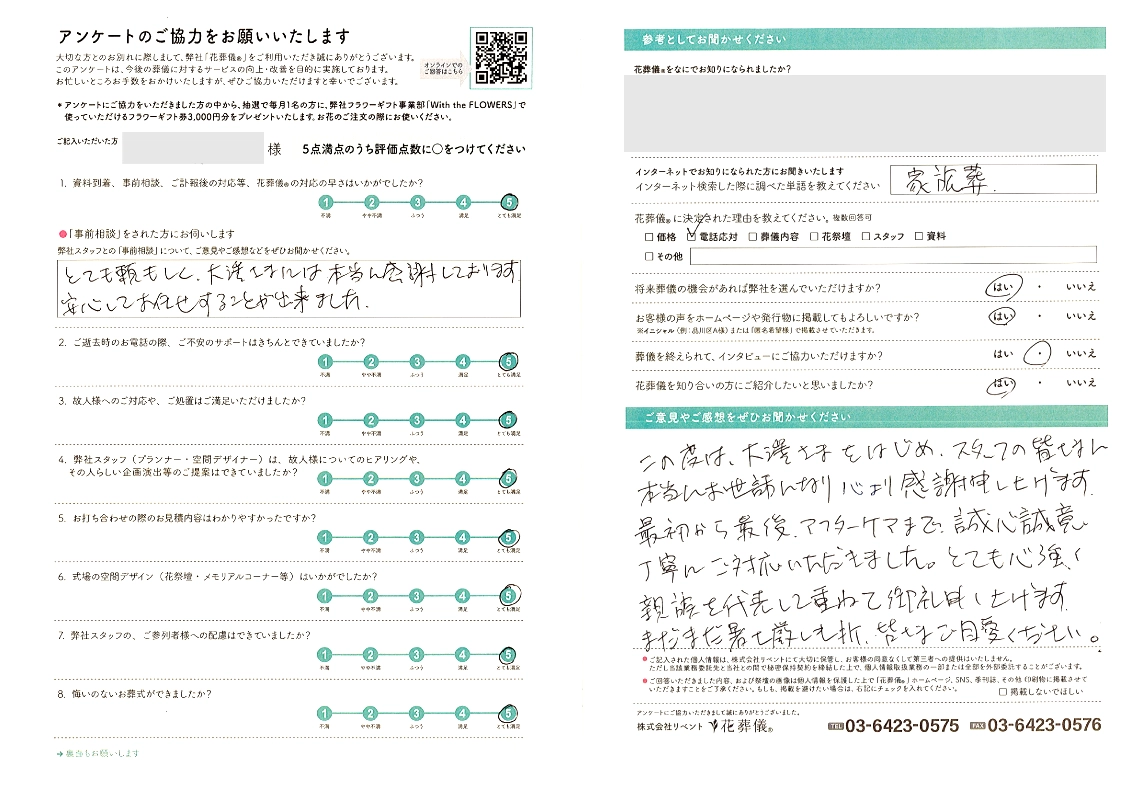 アンケートのご協力をお願いいたします
大切な方とのお別れに際しまして、弊社「花葬儀®」をご利用いただき誠にありがとうございます。
このアンケートは、今後の葬儀に対するサービスの向上・改善を目的に実施しております。
お忙しいところお手数をおかけいたしますが、ぜひご協力いただけますと幸いでございます。
オンラインでの
ご回答はこちら
* アンケートにご協力をいただきました方の中から、抽選で毎月1名の方に、弊社フラワーギフト事業部「With the FLOWERS」で
使っていただけるフラワーギフト券3,000円分をプレゼントいたします。お花のご注文の際にお使いください。
ご記入いただいた方 様 5点満点のうち評価点数に○をつけてください
1. 資料到着、事前相談、ご訃報後の対応等、花葬儀®の対応の早さはいかがでしたか?
1 2 3 4 5
不満 やや不満 ふつう 満足 とても満足
●「事前相談」をされた方にお伺いします
弊社スタッフとの「事前相談」について、ご意見やご感想などをぜひお聞かせください。
とても頼もしく、大澤さまには本当に感謝しております。
安心してお任せすることが出来ました。
2. ご逝去時のお電話の際、ご不安のサポートはきちんとできていましたか?
1 2 3 4 5
不満 やや不満 ふつう 満足 とても満足
3. 故人様へのご対応や、ご処置はご満足いただけましたか?
1 2 3 4 5
不満 やや不満 ふつう 満足 とても満足
4. 弊社スタッフ(プランナー・空間デザイナー)は、故人様についてのヒアリングや、
その人らしい企画演出等のご提案はできていましたか?
1 2 3 4 5
不満 やや不満 ふつう 満足 とても満足
5. お打ち合わせの際のお見積内容はわかりやすかったですか?
1 2 3 4 5
不満 やや不満 ふつう 満足 とても満足
6. 式場の空間デザイン(花祭壇・メモリアルコーナー等)はいかがでしたか?
1 2 3 4 5
不満 やや不満 ふつう 満足 とても満足
7. 弊社スタッフの、ご参列者様への配慮はできていましたか?
1 2 3 4 5
不満 やや不満 ふつう 満足 とても満足
8. 悔いのないお葬式ができましたか?
1 2 3 4 5
不満 やや不満 ふつう 満足 とても満足
➔ 裏面もお願いします
参考としてお聞かせください
花葬儀®をなにでお知りになられましたか?
インターネットでお知りになられた方にお聞きいたします
インターネット検索した際に調べた単語を教えてください 家族葬.
花葬儀®に決定された理由を教えてください。複数回答可
□ 価格 ☑ 電話応対 □ 葬儀内容 □ 花祭壇 □ スタッフ □ 資料
□ その他
将来葬儀の機会があれば弊社を選んでいただけますか? はい ・ いいえ
お客様の声をホームページや発行物に掲載してもよろしいですか? はい ・ いいえ
※イニシャル(例:品川区A様)または「匿名希望様」で掲載させていただきます。
葬儀を終えられて、インタビューにご協力いただけますか? はい ・ いいえ
花葬儀を知り合いの方にご紹介したいと思いましたか? はい ・ いいえ
ご意見やご感想をぜひお聞かせください
この度は、大澤さまをはじめ、スタッフの皆さまに
本当にお世話になり心より感謝申し上げます。
最初から最後、アフターケアまで、誠心誠意
丁寧にご対応いただきました。とても心強く
親族を代表して重ねて御礼申し上げます。
まだまだ暑さ厳しき折、皆さまご自愛ください。
● ご記入された個人情報は、株式会社リベントにて大切に保管し、お客様の同意なくして第三者への提供はいたしません。
ただし当該業務委託先と当社との間で秘密保持契約を締結した上で、個人情報取扱業務の一部または全部を外部委託することがございます。
● ご回答いただきました内容、および祭壇の画像は個人情報を保護した上で「花葬儀®」ホームページ、SNS、季刊誌、その他印刷物に掲載させて
いただきますことをご了承ください。もしも、掲載を避けたい場合は、右記にチェックを入れてください。 □ 掲載しないでほしい
アンケートにご協力いただきまして誠にありがとうございました。
株式会社リベント 花葬儀® TEL 03-6423-0575 FAX 03-6423-0576